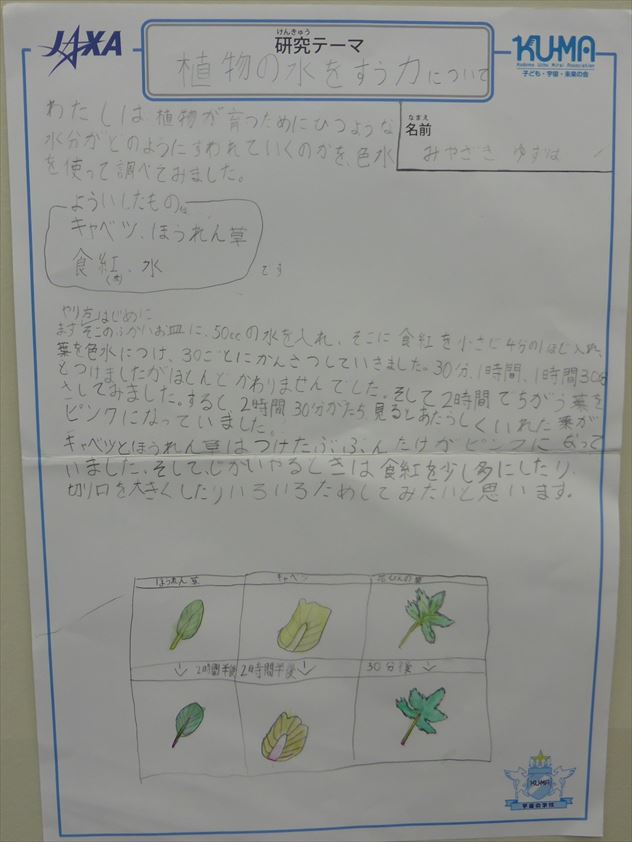 JAXA
けんきゅう
研究テーマ
植物の水をすう力について
KU-MA
Kodomo Uchu Mirai Association
子ども・宇宙・未来の会
なまえ
名前
みやざき ゆずは
わたしは植物が育つためにひつような
水分がどのようにすわれていくのかを、色水
を使って調べてみました。
よういしたもの
キャベツ、ほうれん草
食紅(赤)、水
です
やり方はじめに
まずそこのふかいお皿に、50ccの水を入れ、そこに食紅を小さじ4分の1ほど入れ、
葉を色水につけ、30ごとにかんさつしていきました。30分、1時間、1時間30分
とつけましたがほとんどかわりませんでした。そして2時間でちがう葉を
さしてみました。すると2時間30分がたち見るとあたらしくいれた葉が
ピンクになっていました。
キャベツとほうれん草はつけたぶぶんだけがピンクになって
いました、そして、じかいやるときは食紅を少し多にしたり、
切り口を大きくしたりいろいろためしてみたいと思います。
ほうれん草
キャベツ
の葉
↓ 2時間半後
2時間半後 ↓
30分後 ↓
KU-MA
宇宙の学校